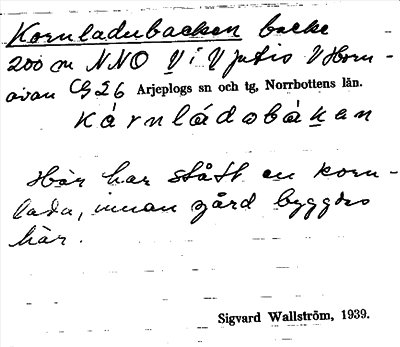 Kornladubacken backe
200 m NNO V i V Jutis V Horn-
avan CG26 Arjeplogs sn och tg, Norrbottens län.
kårnládobákan
Här har stått en korn-
lada, innan gård byggdes
här.
Sigvard Wallström, 1939.